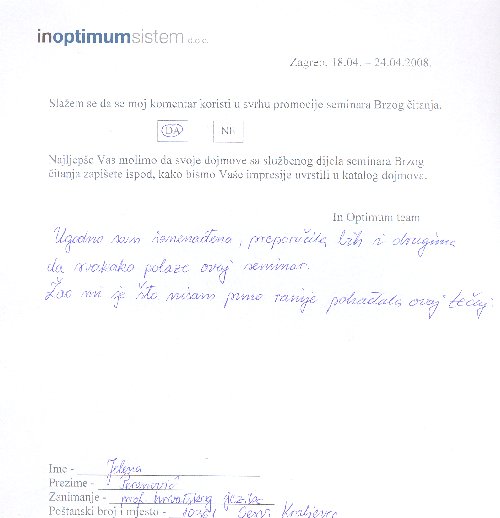 inoptimumsistem d.o.o.
Zagreb, 18.04. – 24.04.2008.
Slažem se da se moj komentar koristi u svrhu promocije seminara Brzog čitanja.
DA NE
Najljepše Vas molimo da svoje dojmove sa službenog dijela seminara Brzog
čitanja zapišete ispod, kako bismo Vaše impresije uvrstili u katalog dojmova.
In Optimum team
Ugodno sam iznenađena, preporučila bih i drugima
da svakako polaze ovaj seminar.
Žao mi je što nisam puno ranije pohađala ovaj tečaj.
Ime - Jelena
Prezime -
Zanimanje - prof. hrvatskog jezika
Poštanski broj i mjesto - Kraljevec